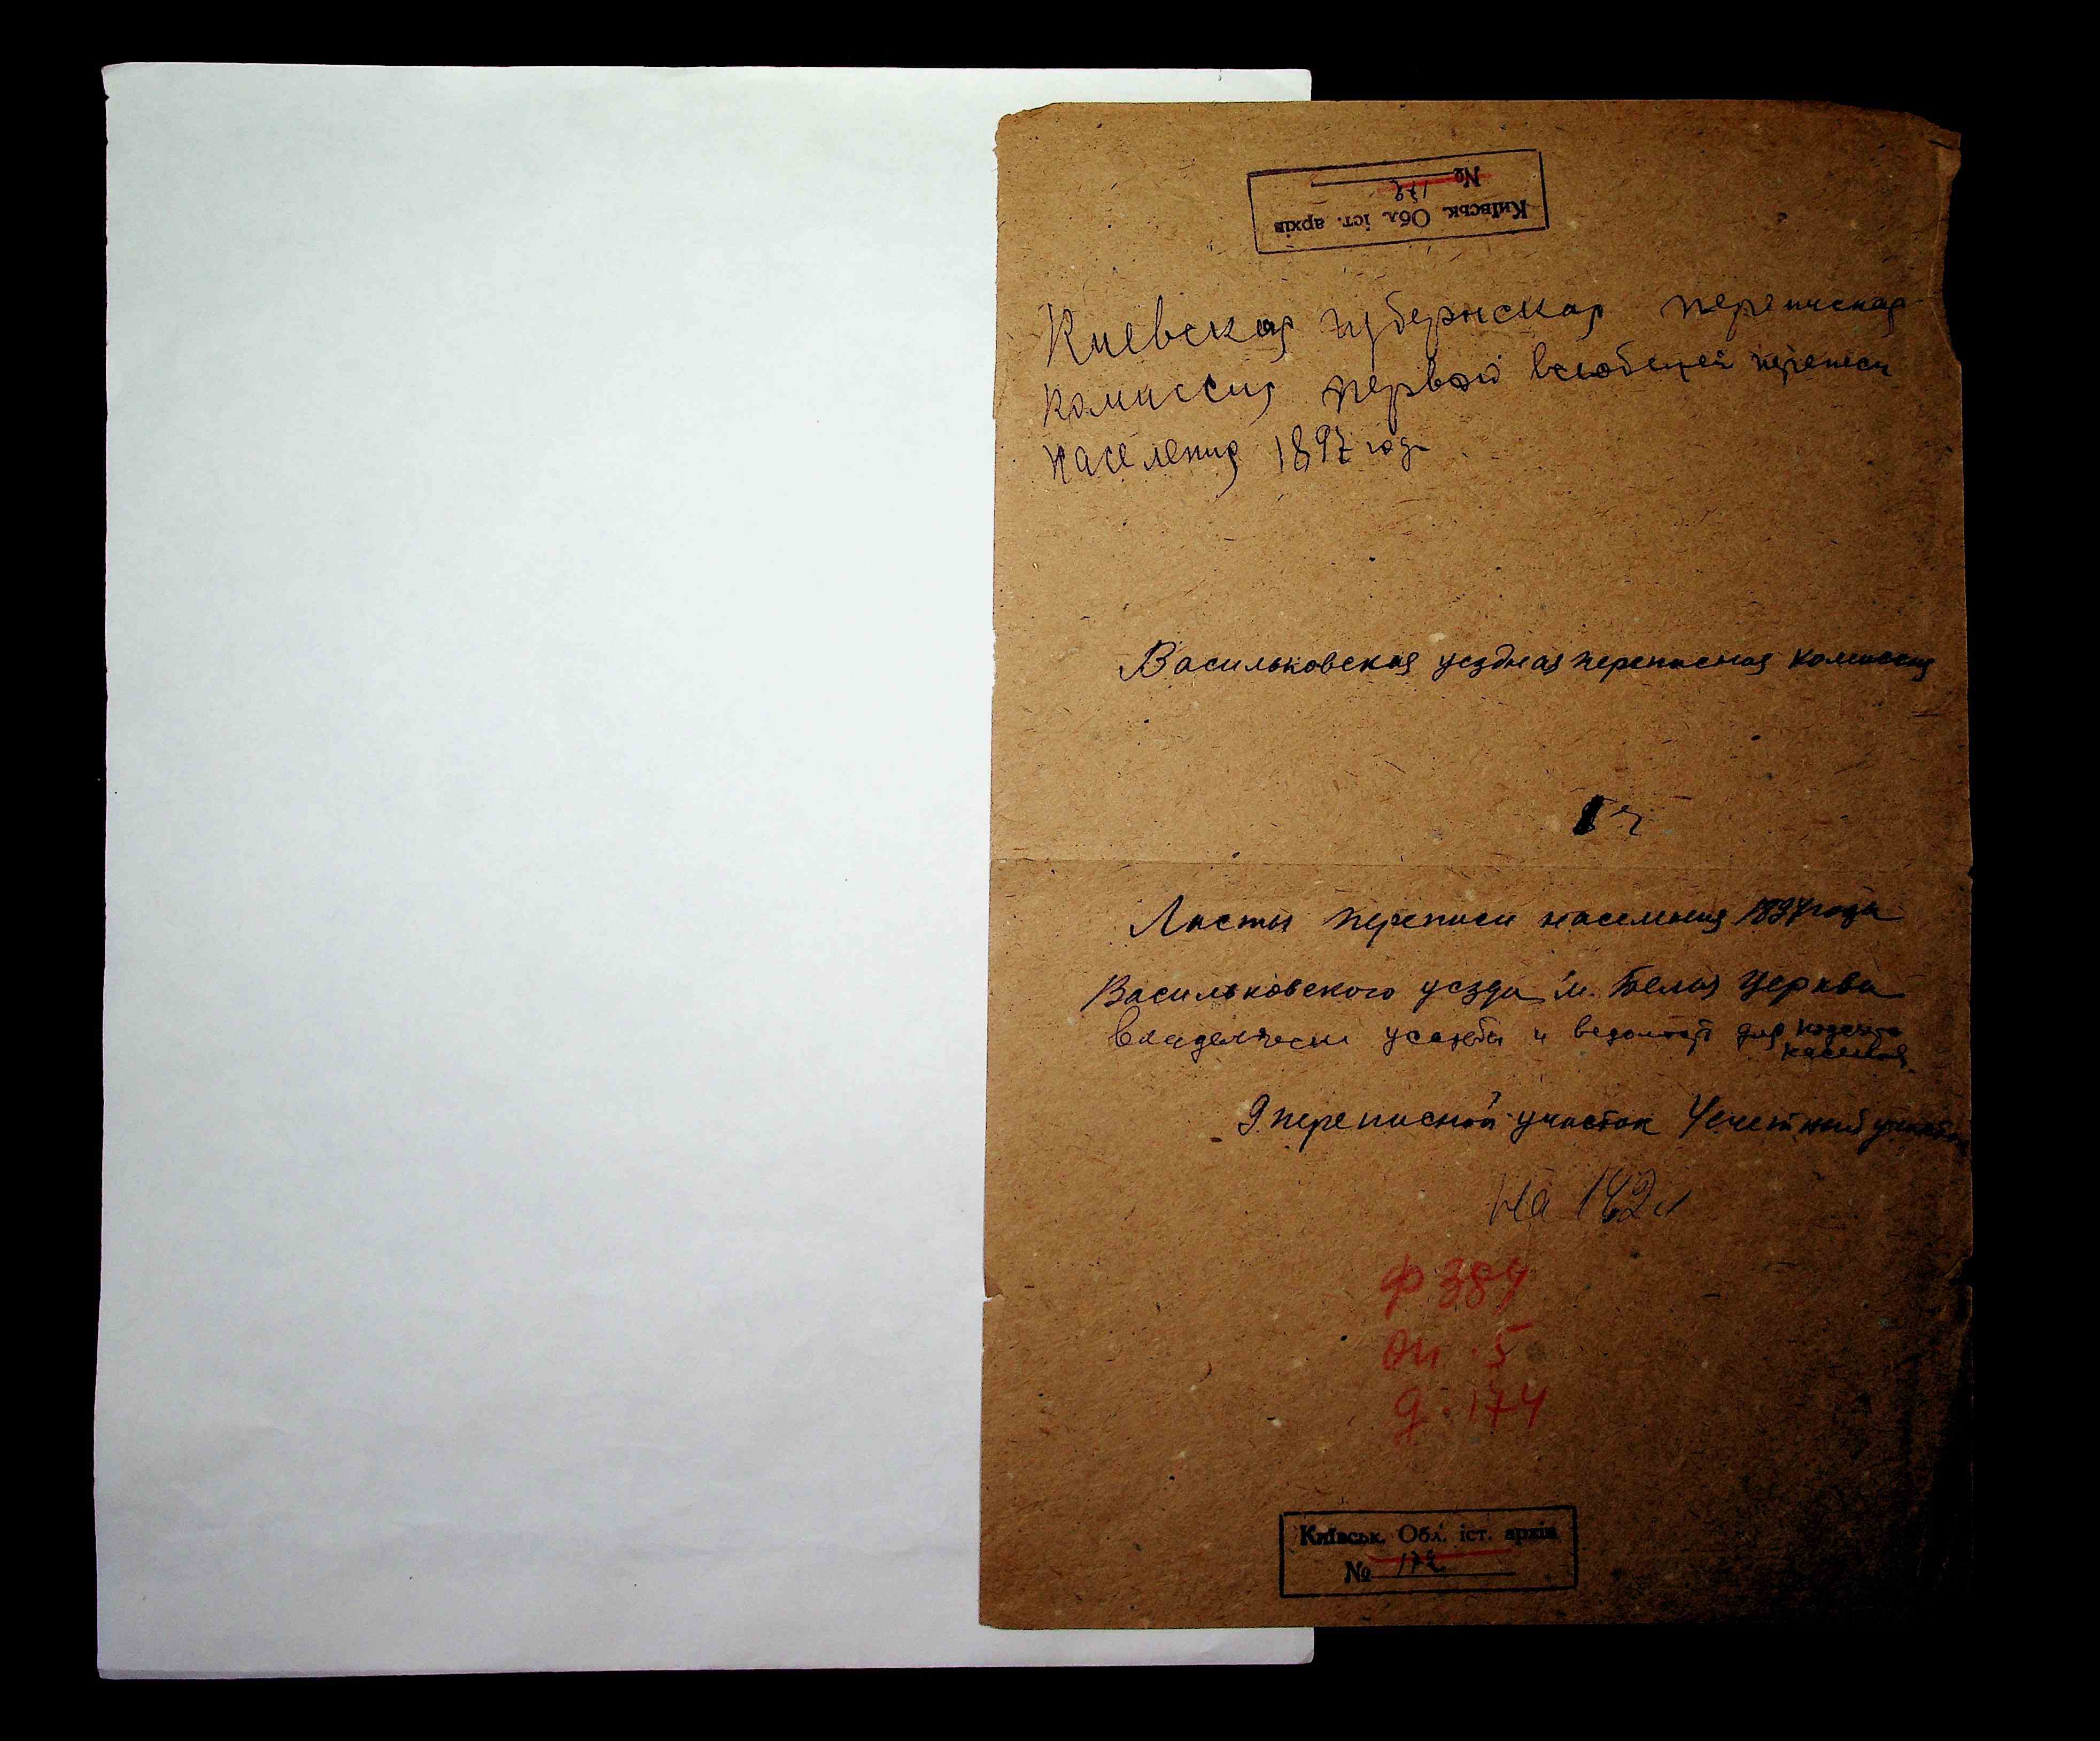 Київськ. Обл. іст. архів
№ 172
Киевская губернская переписная
комиссия первой всеобщей переписи
населения 1897 года
Васильковская уездная переписная комиссия
Листы переписи населения 1897 года
Васильковского уезда м. Белая Церковь
владельческ усадьба и ведомость для подсчета
населения
9 переписной участок 4 счетный участок
на 142 л
Ф 384
оп. 5
д. 174
Київськ. Обл. іст. архів
№ 172